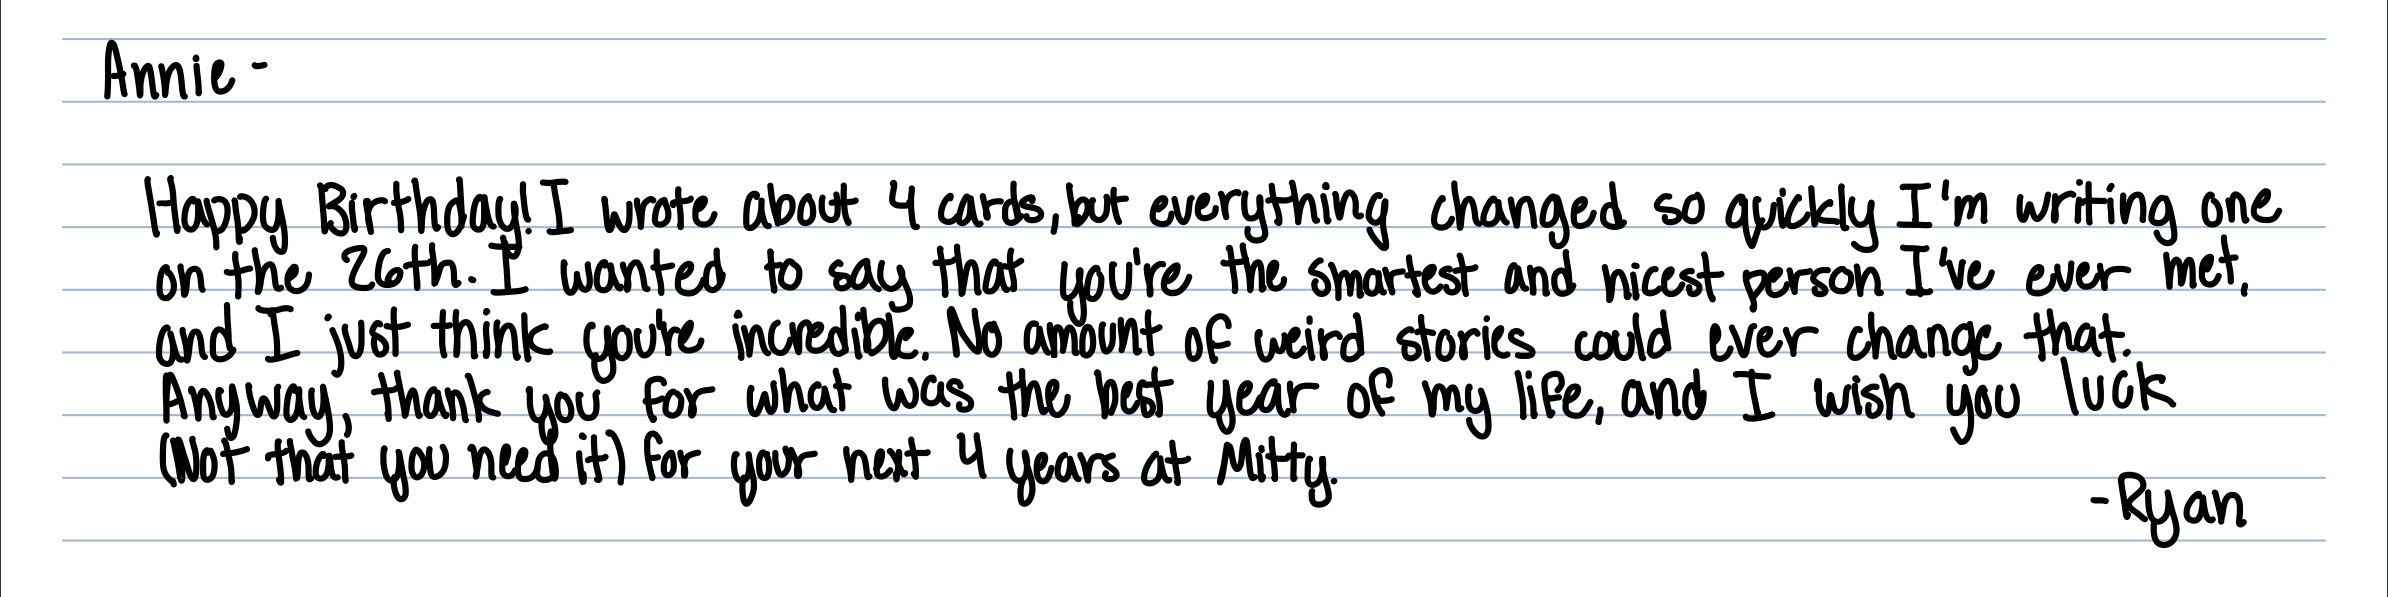 Annie -
Happy Birthday! I wrote about 4 cards, but everything changed so quickly I'm writing one
on the 26th. I wanted to say that you're the smartest and nicest person I've ever met,
and I just think you're incredible. No amount of weird stories could ever change that.
Anyway, thank you for what was the best year of my life, and I wish you luck
(Not that you need it) for your next 4 years at Mitty.
-Ryan